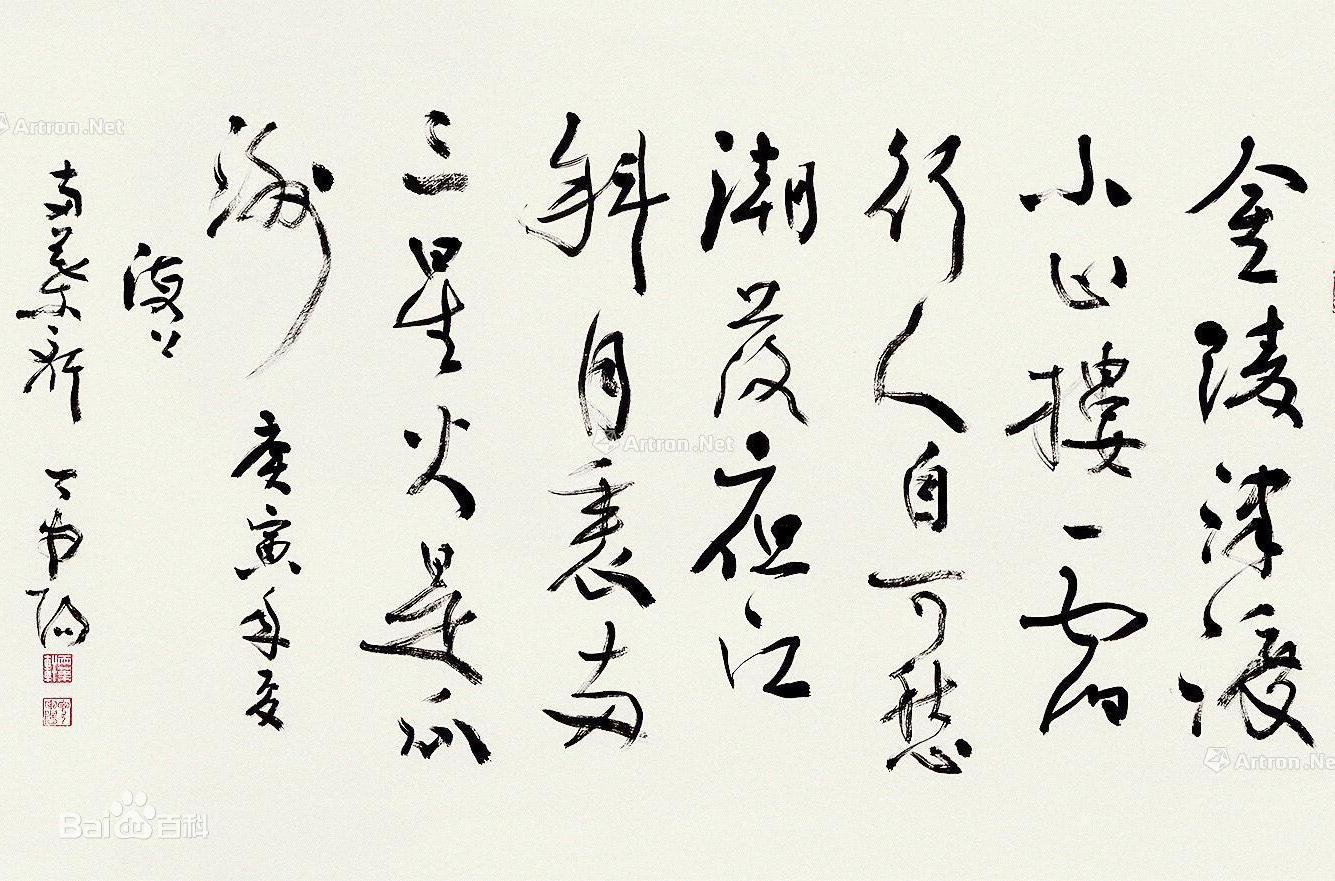 金陵津渡
小山樓一宿
行人自可愁
潮落夜江
斜月裏两
三星火是瓜
洲 庚寅年夏
Artron.Net
Artron.Net
Artron.Net
Bai百科